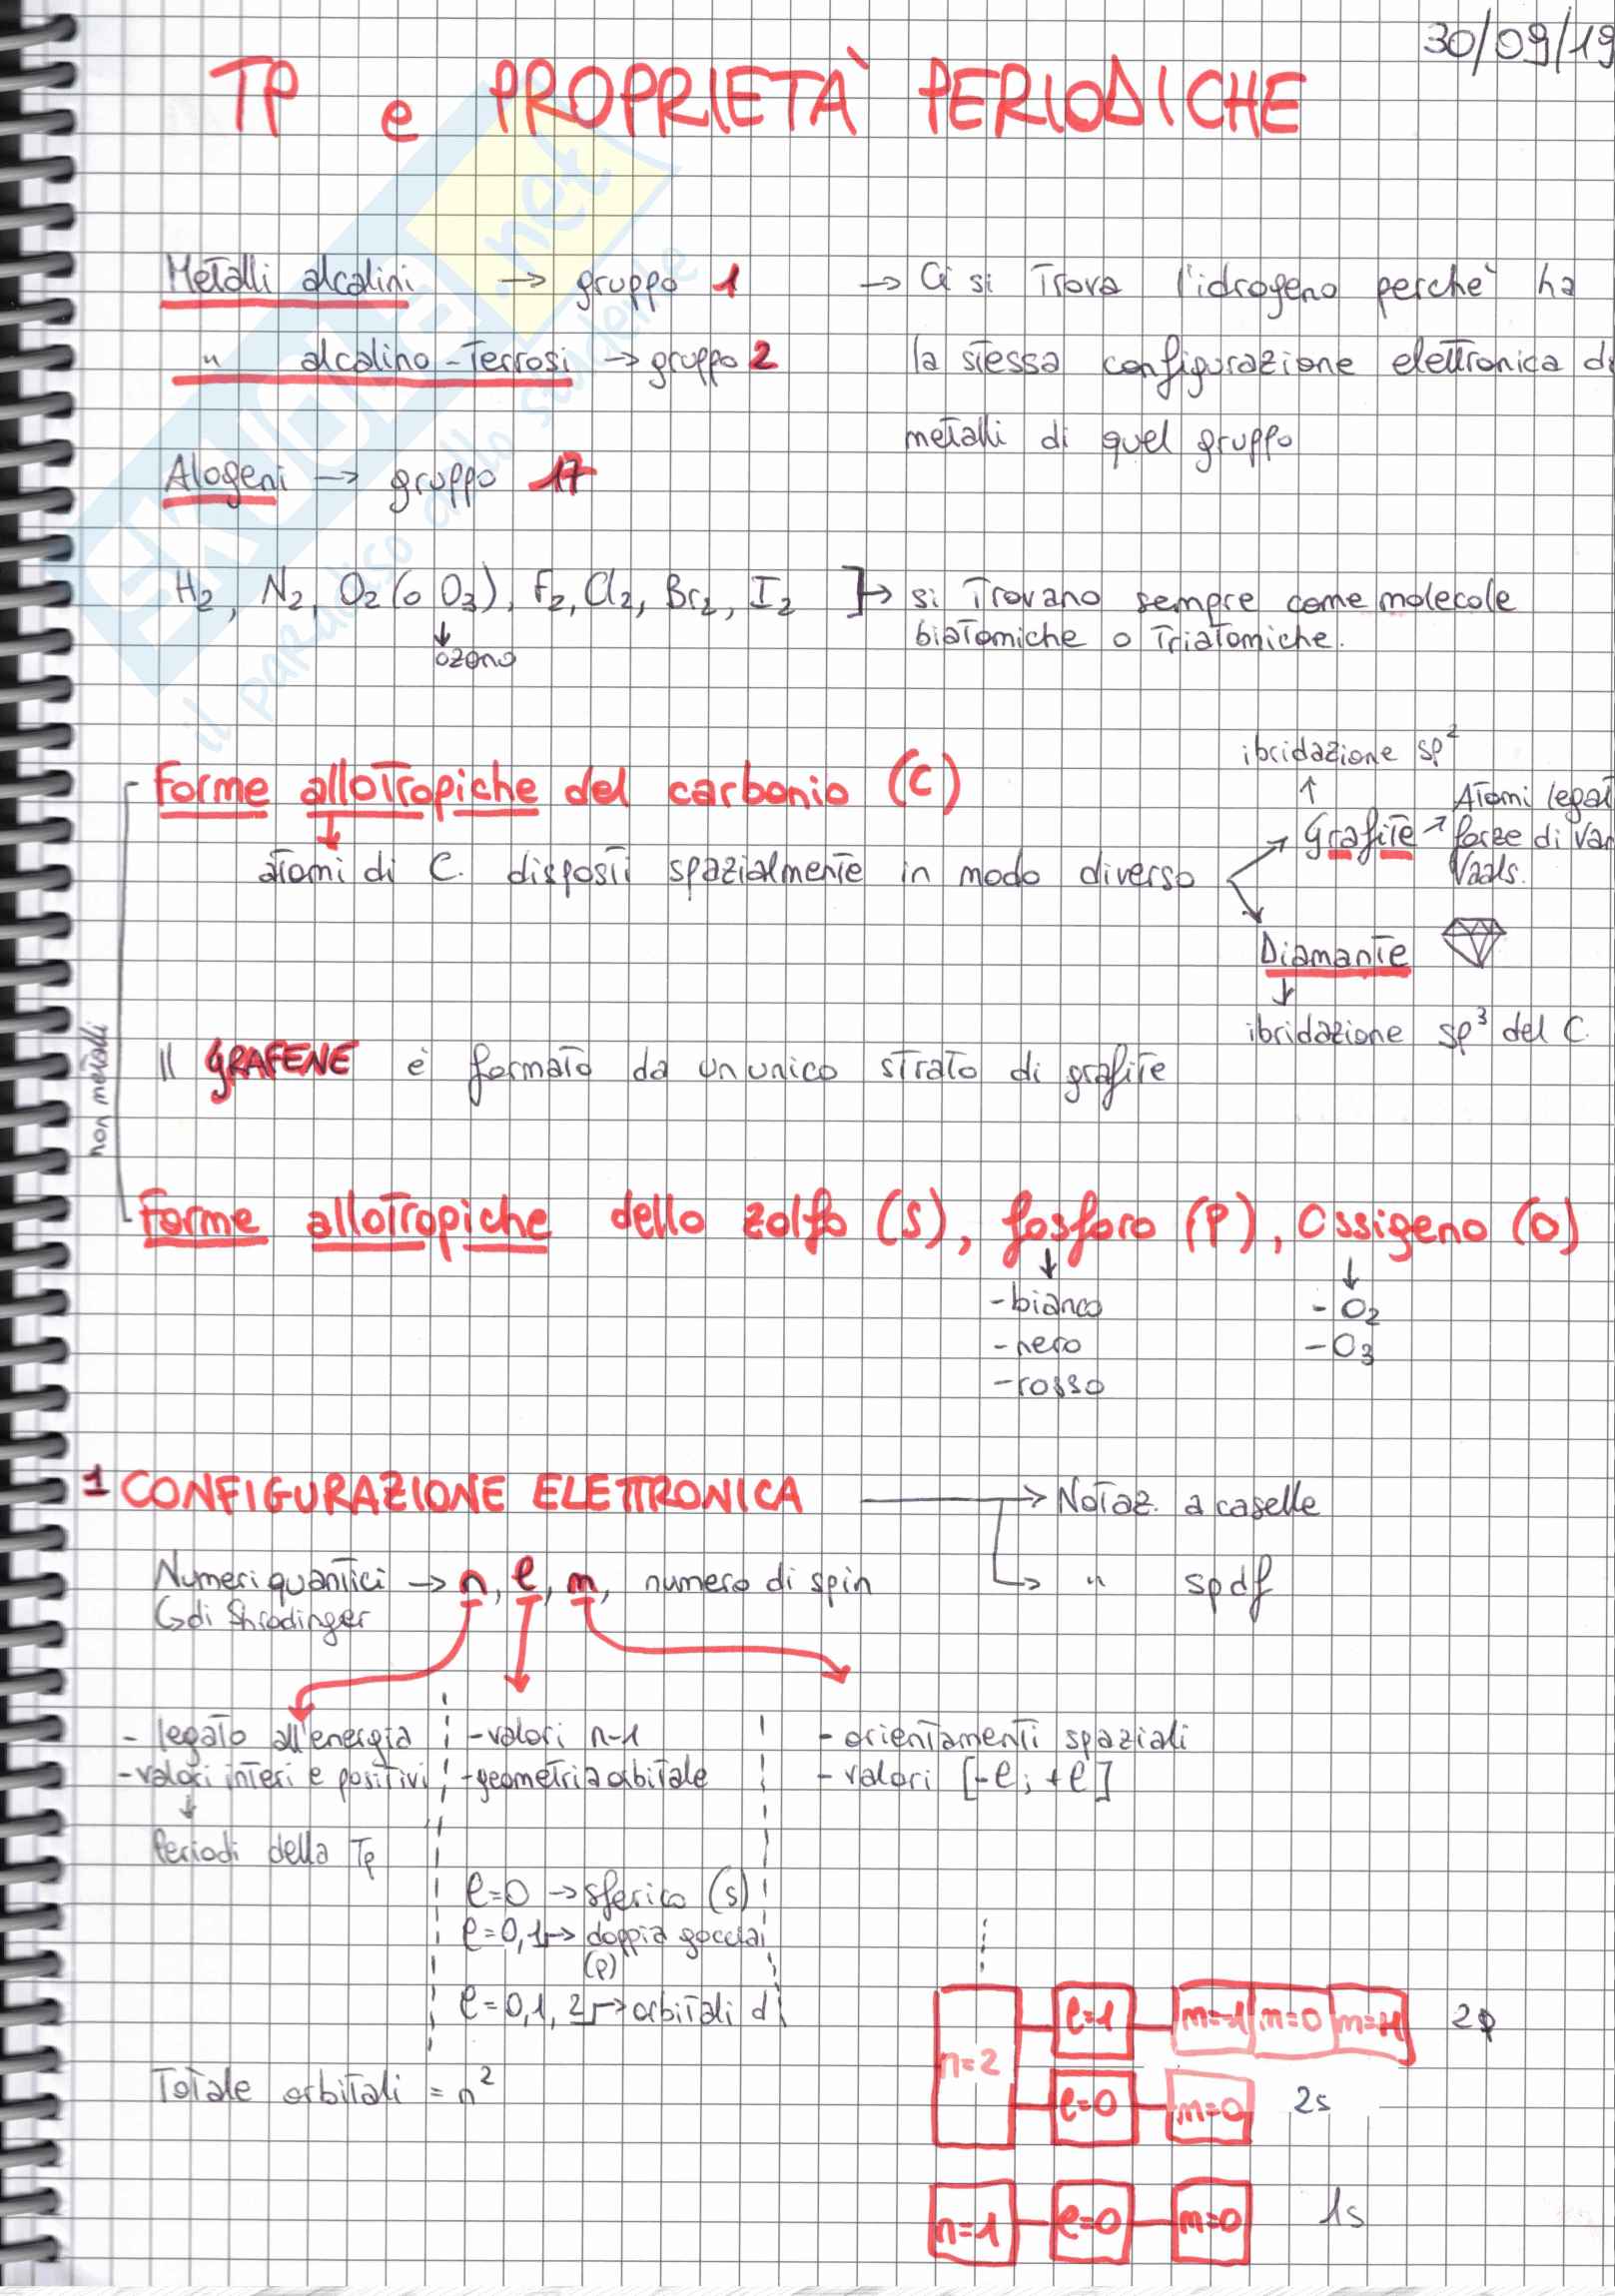 30/09/19
TP e PROPRIETÀ PERIODICHE
Metalli alcalini → gruppo 1 → Ci si trova l'idrogeno perchè ha
" alcalino-terrosi → gruppo 2 la stessa configurazione elettronica di
metalli di quel gruppo
Alogeni → gruppo 17
H₂, N₂, O₂ (o O₃), F₂, Cl₂, Br₂, I₂ ]→ si trovano sempre come molecole
↓ biatomiche o triatomiche.
ozono
ibridazione sp²
↑
Forme allotropiche del carbonio (C)
Atomi legat
↓ → Grafite → forze di Van
atomi di C. disposti spazialmente in modo diverso
Vaals.
Diamante
↓
ibridazione sp³ del C.
Il GRAFENE è formato da un unico strato di grafite
non metalli
Forme allotropiche dello zolfo (S), fosforo (P), Ossigeno (O)
↓ ↓
-bianco - O₂
-nero - O₃
-rosso
1 CONFIGURAZIONE ELETTRONICA → Notaz. a caselle
Numeri quantici → n, l, m, numero di spin → " spdf
↳ di Shrodinger
- legato all'energia - valori n-1 - orientamenti spaziali
- valori interi e positivi - geometria orbitale - valori [-l; +l]
↓
Periodi della Tp
l=0 → sferico (s)
l=0,1 → doppia goccia
(p)
l=0,1,2 → orbitali d
n=2 l=1 m=-1 m=0 m=+1 2p
Totale orbitali = n²
l=0 m=0 2s
n=1 l=0 m=0 1s
SKUOLA.net
il paradiso dello studente